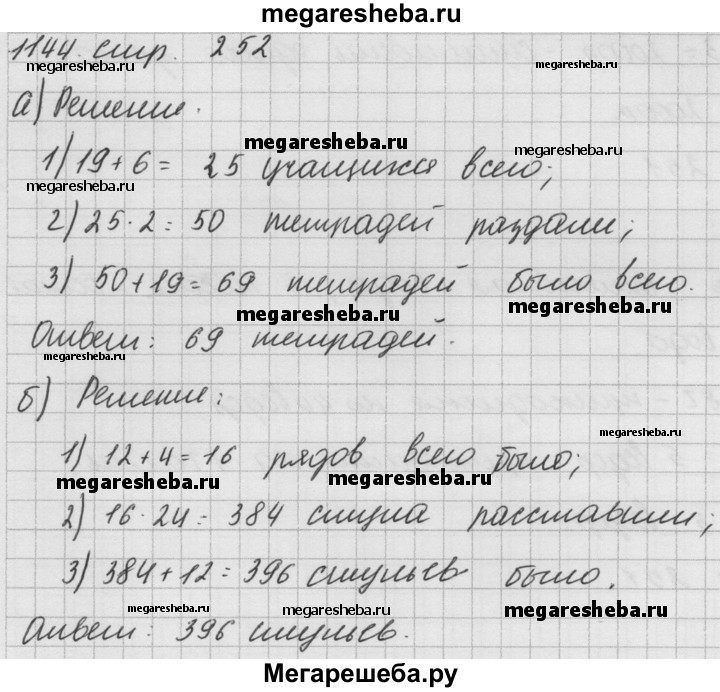 megaresheba.ru
1144. стр. 252
megaresheba.ru megaresheba.ru
а) Решение.
megaresheba.ru
1) 19 + 6 = 25 учащихся всего;
megaresheba.ru
megaresheba.ru megaresheba.ru
2) 25 · 2 = 50 тетрадей раздали;
3) 50 + 19 = 69 тетрадей было всего.
megaresheba.ru megaresheba.ru
Ответ: 69 тетрадей.
megaresheba.ru
б) Решение:
megaresheba.ru
1) 12 + 4 = 16 рядов всего было;
megaresheba.ru megaresheba.ru
2) 16 · 24 = 384 стула расставили;
3) 384 + 12 = 396 стульев было.
megaresheba.ru megaresheba.ru megaresheba.ru
Ответ: 396 стульев.
Мегарешеба.ру